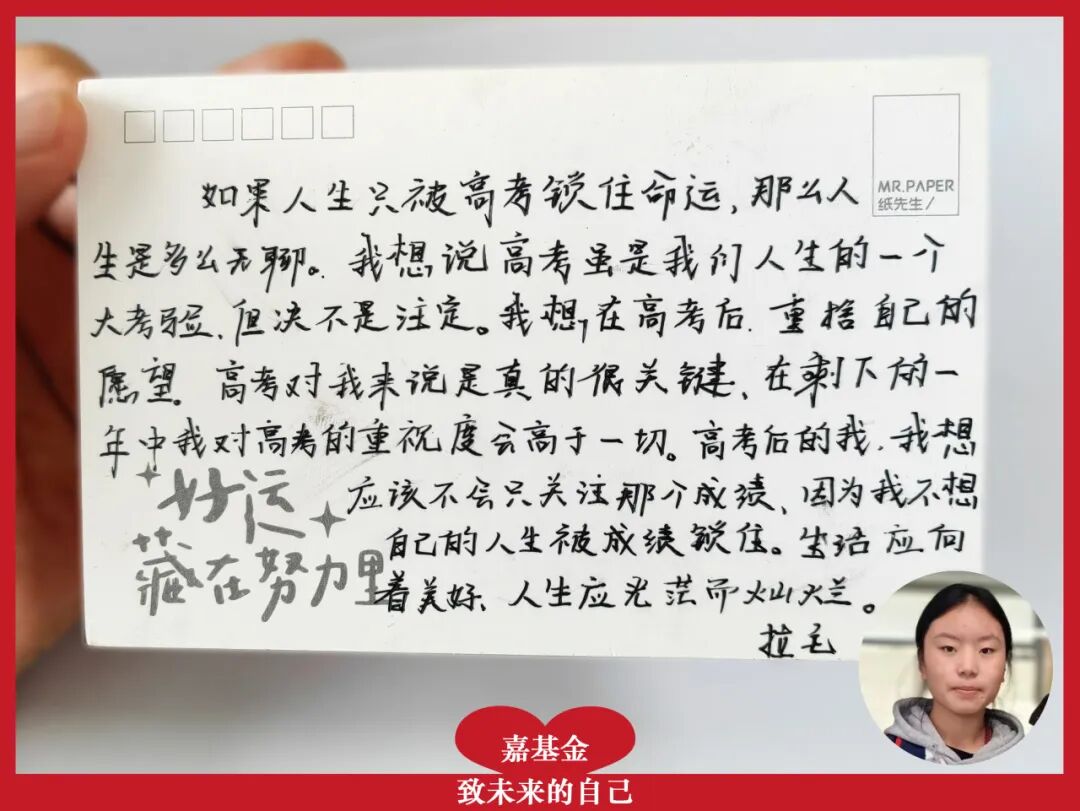 MR.PAPER
纸先生/
如果人生只被高考锁住命运，那么人
生是多么无聊。我想说高考虽是我们人生的一个
大考验，但决不是注定。我想，在高考后，重捨自己的
愿望。高考对我来说是真的很关键，在剩下的一
年中我对高考的重视度会高于一切。高考后的我，我想
应该不会只关注那个成绩，因为我不想
自己的人生被成绩锁住。生活应向
着美好、人生应光茫而灿烂。
拉毛
好运
藏在努力里
嘉基金
致未来的自己